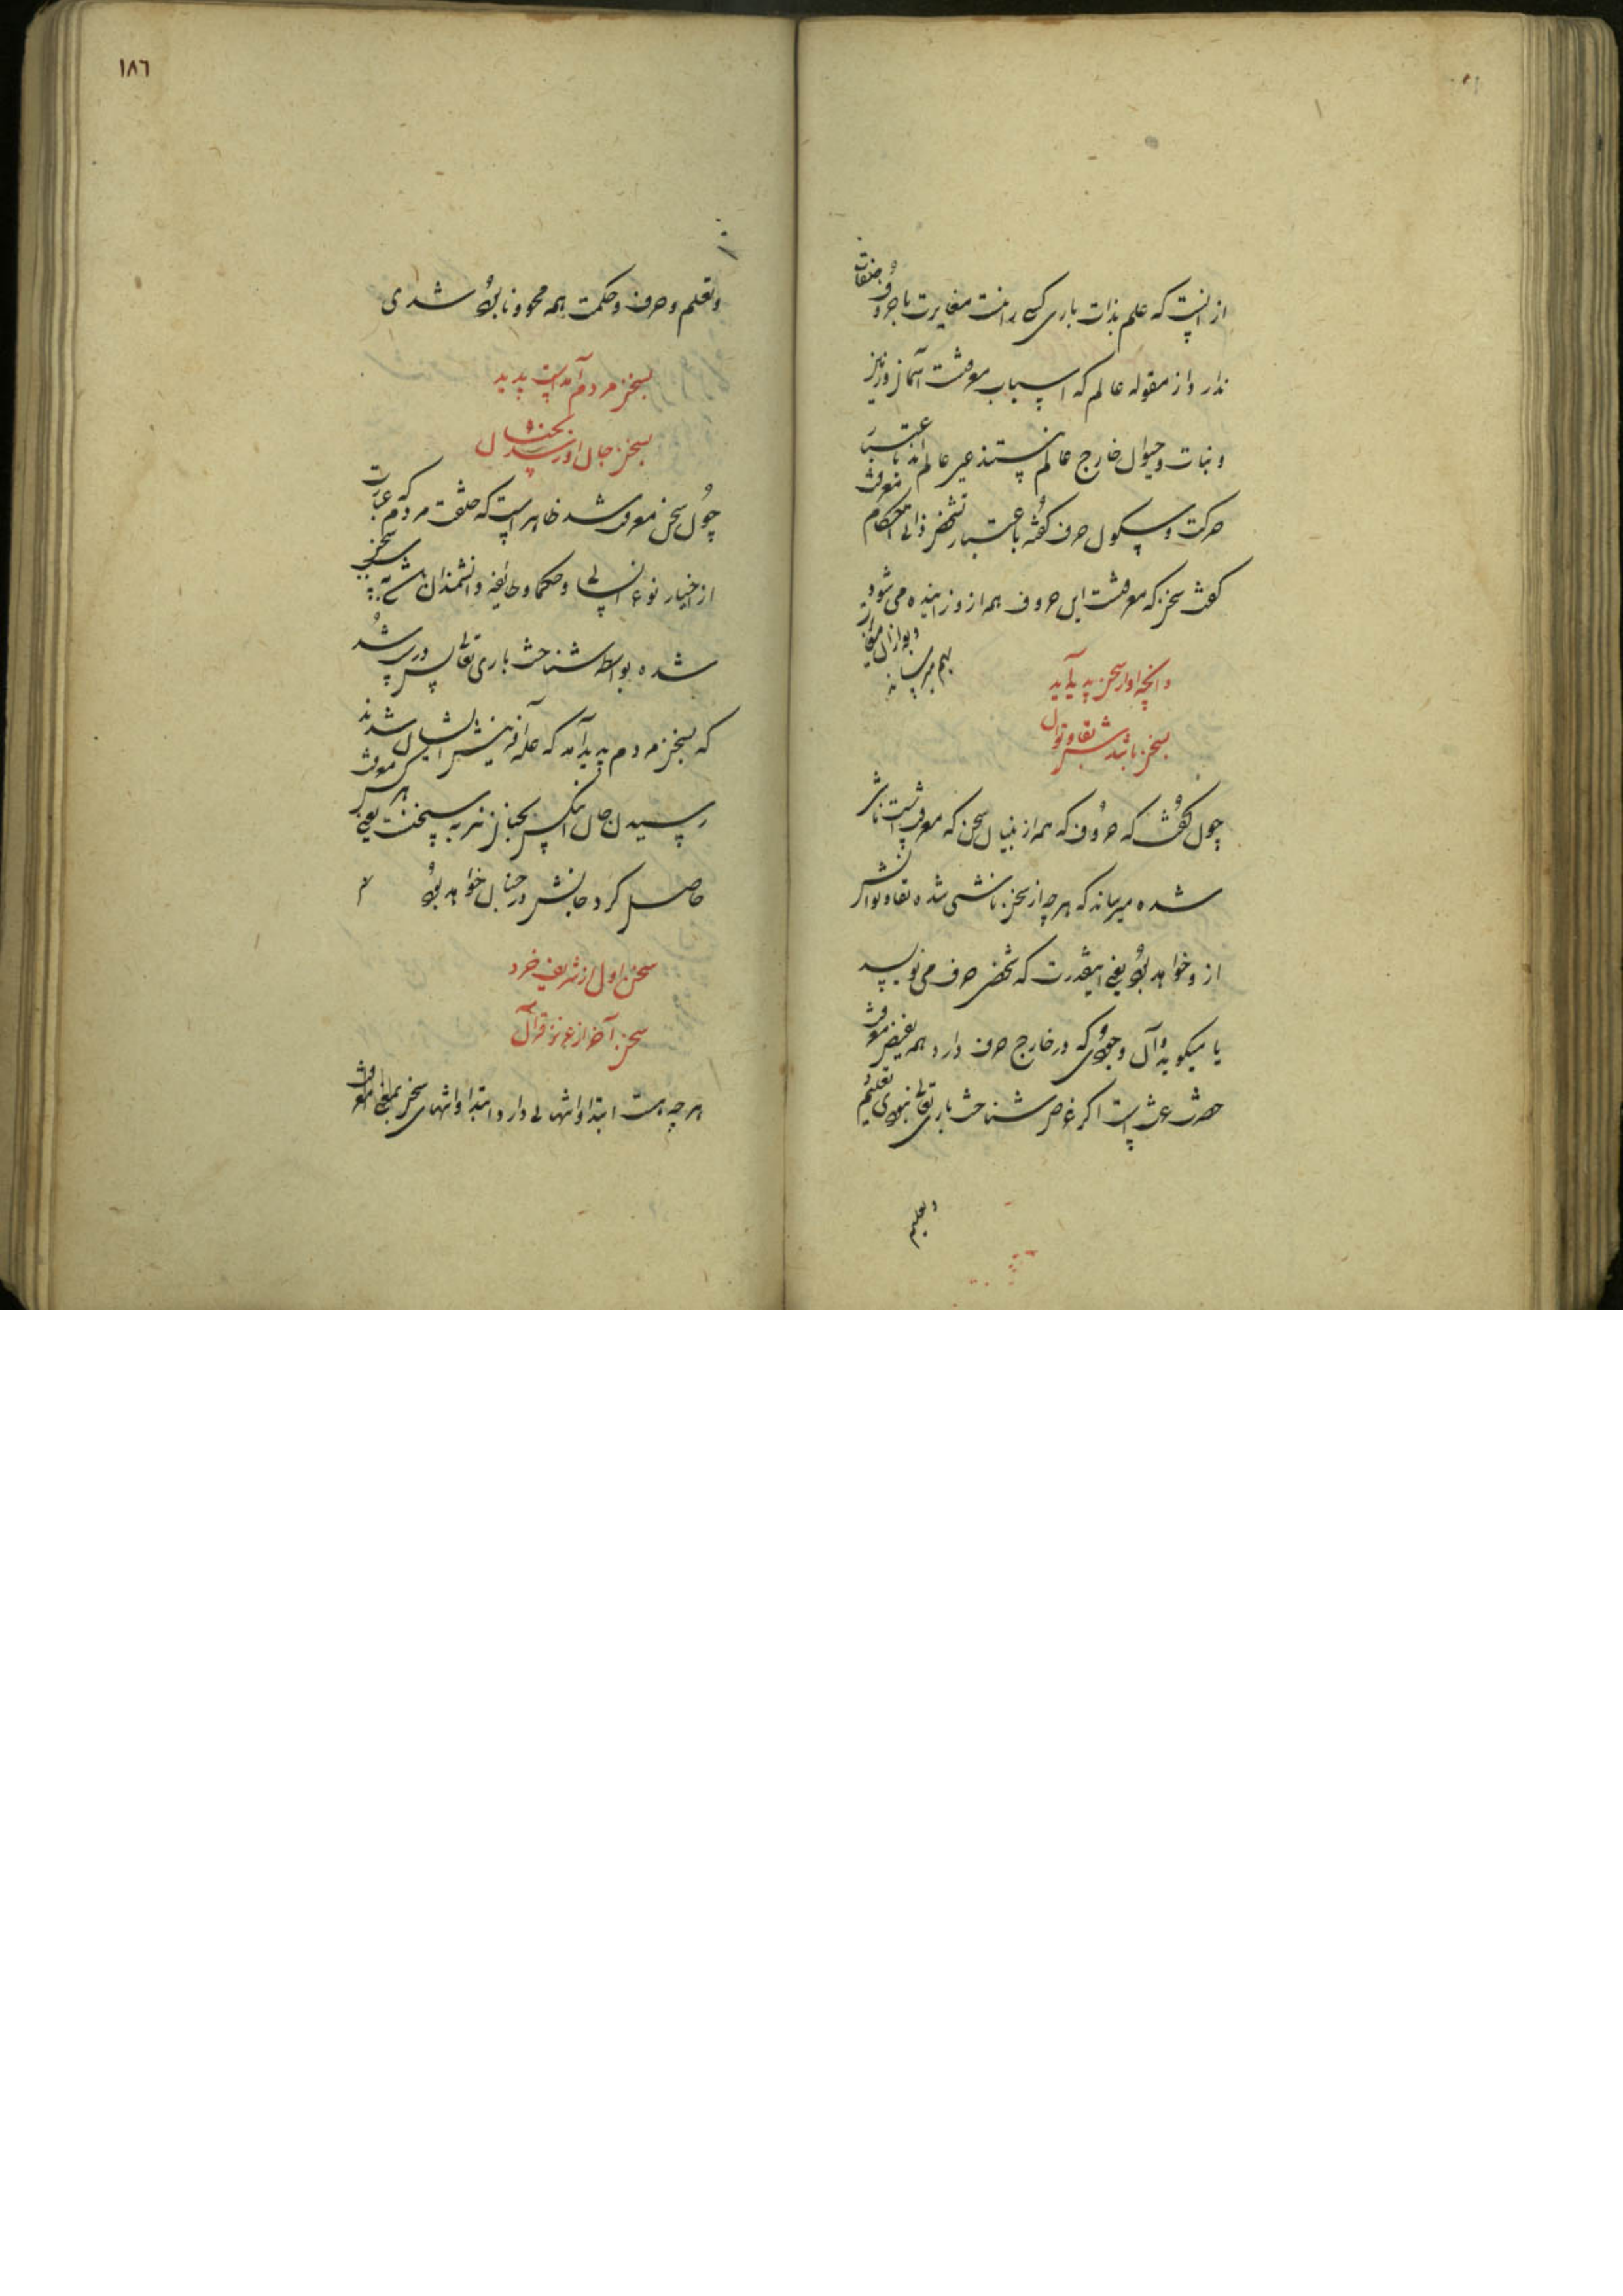 از انست که علم بذات باری کسی را نیست مغایرت با حروف صفات
ندارد از مقوله عالم که اسباب معرفت آسمان و زمین
و نبات و حیوان خارج عالم نیستند غیر عالم اند باعتبار
حرکت و سکون حرف گفته باعتبار تشخص ذاتی احکام معرفت
گفت سخن که معرفت این حروف همه ازو زاینده می‌شود
و بوازان
بهم میرساند
وانچه او از سخن پدید آید
بسخن باشدش بقا و توان
چون گفت که حروف که همه از بنیان سخن که معرفتست ناشی
شده میرساند که هرچه از سخن ناشی شده بقا و توانش
ازو خواهد بود یعنی اینقدرت که شخص حرف می‌نویسد
یا میگوید و آن وجودی که در خارج حرف دارد همه بفیض معرفت
حضرت عزتست اگر غرض شناخت باری تعالی نبودی تعلیم
و تعلیم
١٨٦
و تعلم و حرف و حکمت همه محو و نابود شدی
بسخن مردم آمدست پدید
بسخن جان او رسد بجنان
چون سخن معرفت شد ظاهر است که خلقت مردم که عبارت
از اخیار نوع انسانی و حکما و طایفه دانشمندان
شده بواسطه شناخت باری تعالی پس درست شد
که بسخن مردم پدید آمد که علة آفرینش ایشان شدند
رسیدن جان انکس بجنان نیز به سخنست یعنی هر کس معرفت
حاصل کرد جانش در جنان خواهد بود
سخن اول از شریف خرد
سخن آخر از عزیز قرآن
هر چه هست ابتدا و انتهائی دارد ابتدا و انتهای سخن بمعنی معرفت